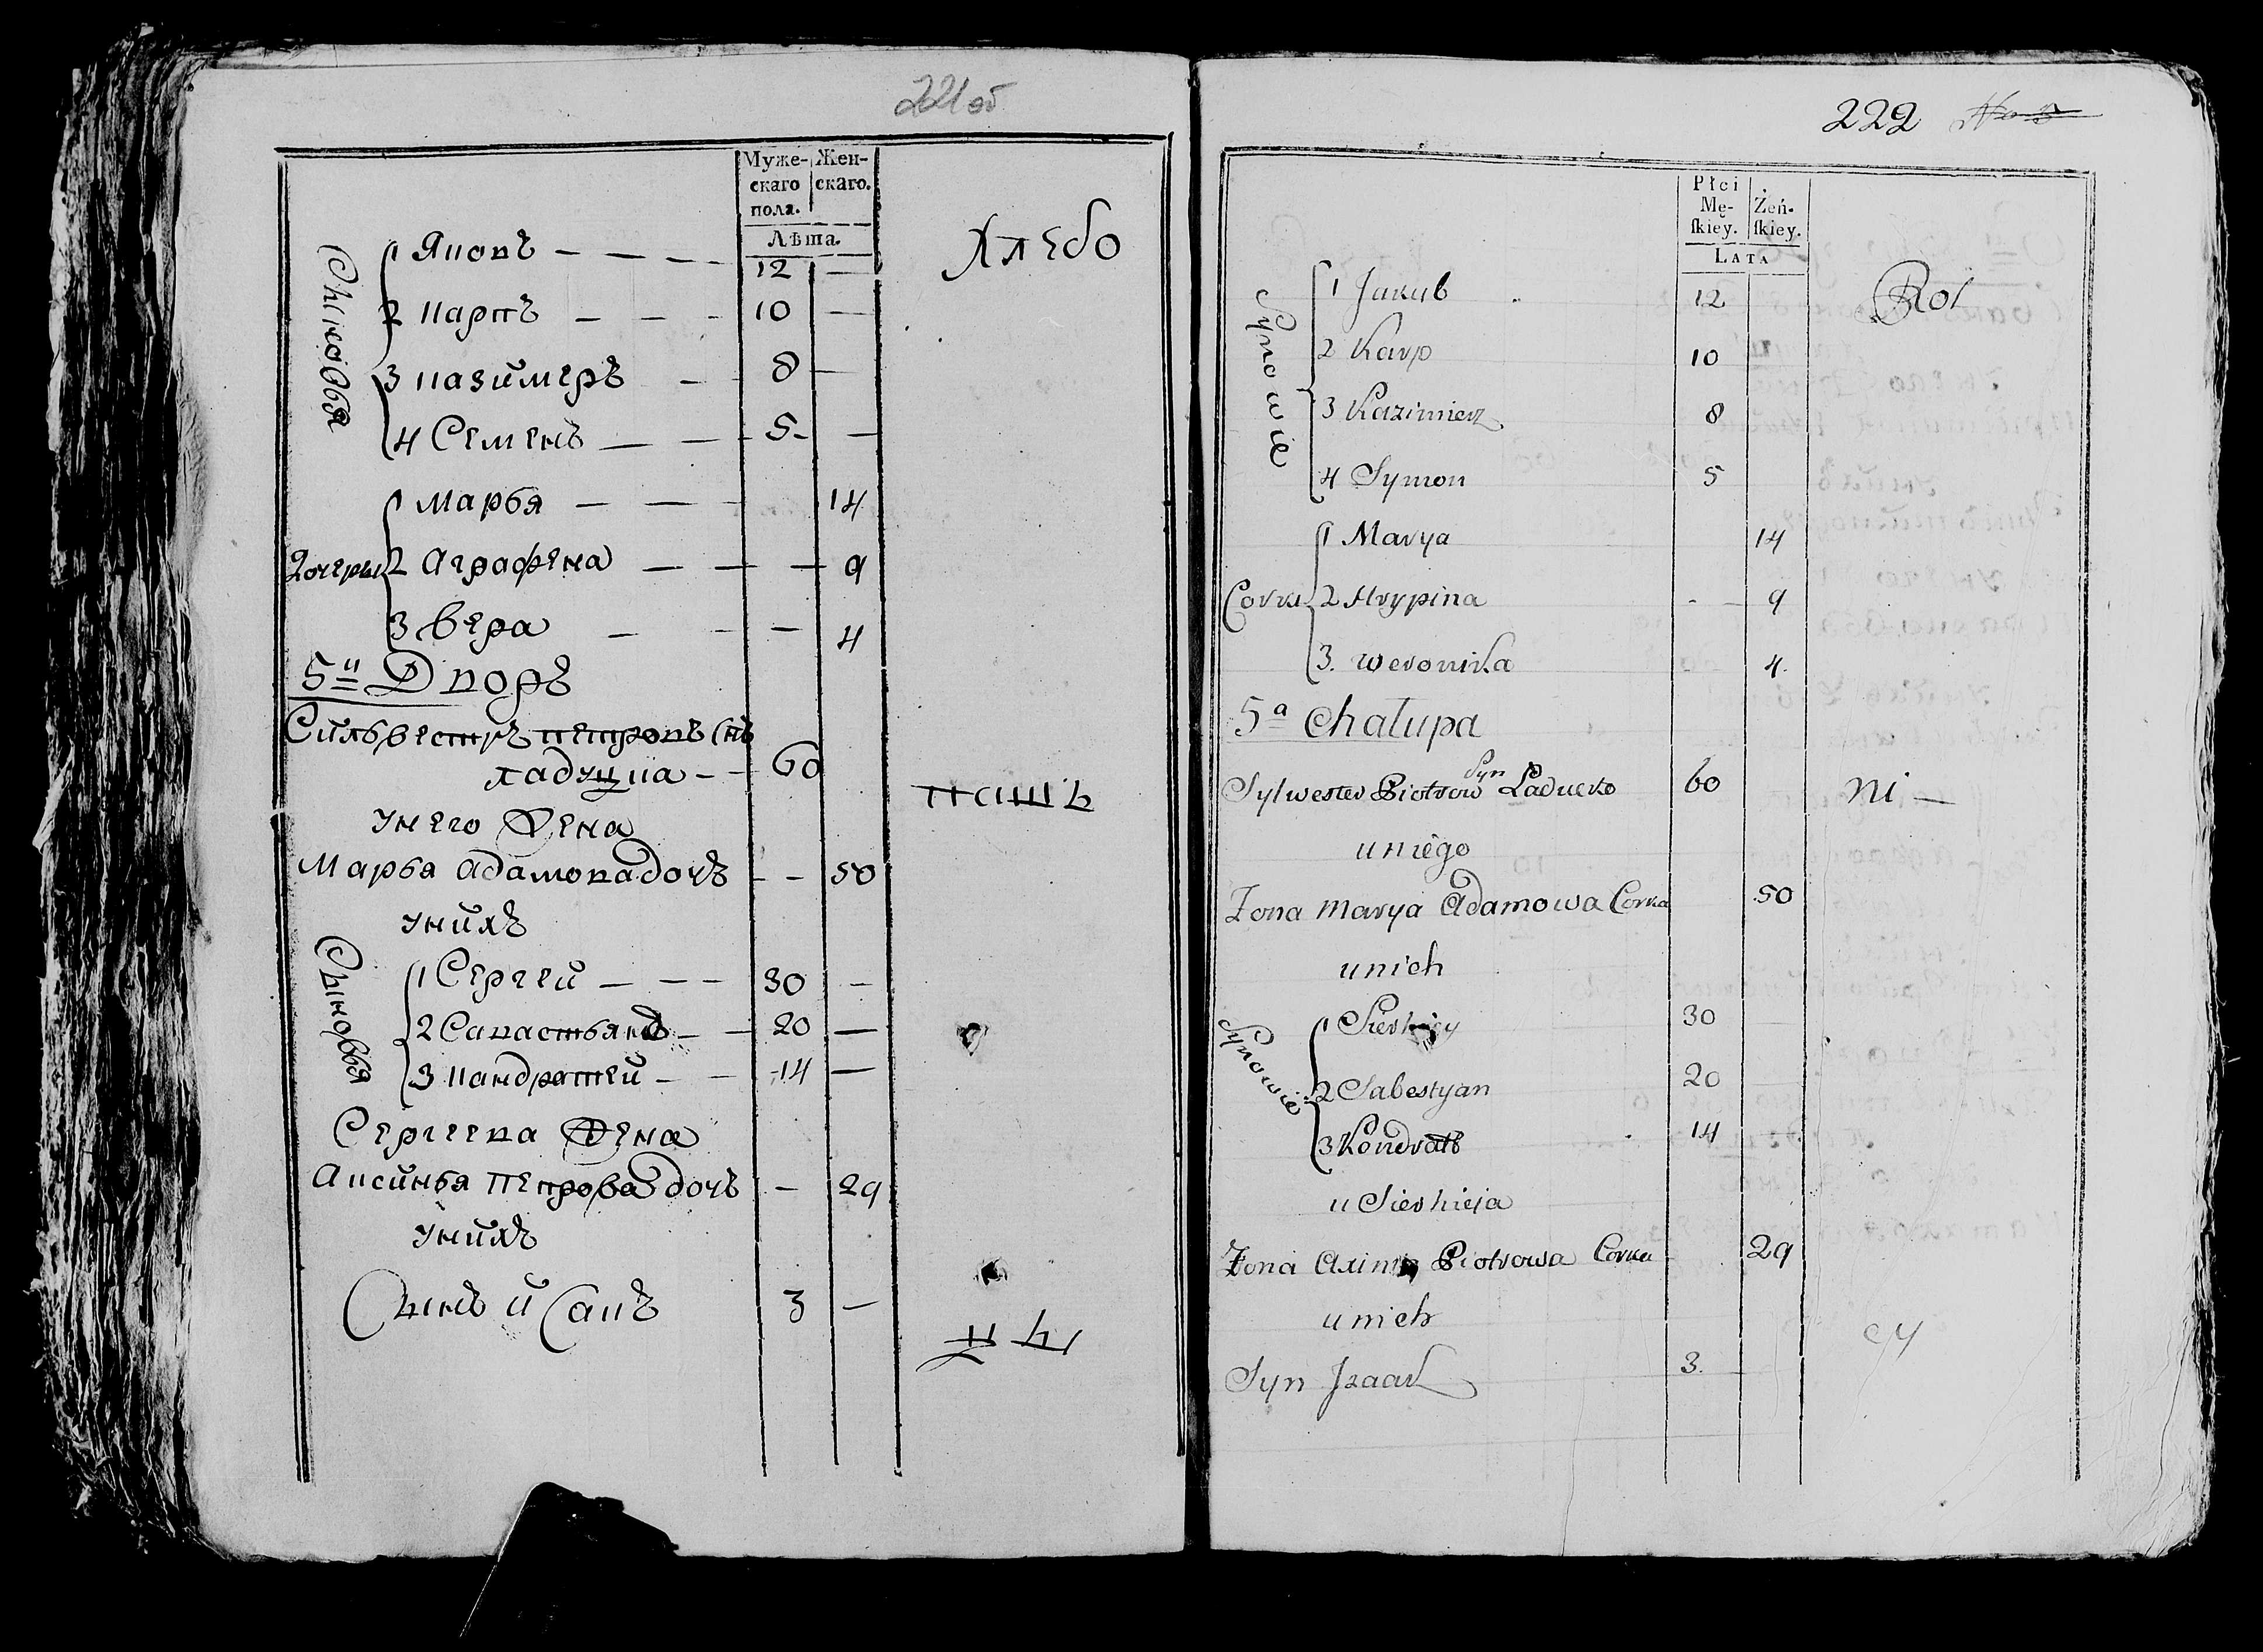 221 об
Муже-
скаго
пола.
Жен-
скаго.
Лѣта.
Сыновья
1 Яковъ — — — — 12 —
2 Карпъ — — — 10 —
3 Казимеръ — 8 —
4 Семенъ — — 5 — —
Хлебо
Дочеры
1 Марья — — — 14
2 Аграфена — — — 9
3 Вера — — — 4
5й Дворъ
Сильвестръ Петровъ Снъ
Ладуцка — — 60
пашъ
у него Жена
Марья Адамова дочъ — — 50
у нихъ
Сыновья
1 Сергей — — — 30 —
2 Савастьянъ — — 20 —
3 Кандратей — — 14 —
Сергеева Жена
Аксинья Петрова дочъ — 29
у нихъ
Сынъ Исакъ 3 —
цы
222
Płci
Mę-
ſkiey.
Żeń-
ſkiey.
LATA
Synowie
1 Jakub 12
2 Karp 10
3 Kazimierz 8
4 Symon 5
Rol
Corki
1 Marya 14
2 Hrypina — 9
3. Weronika 4.
5a Chałupa
Sylwester Piotrow Syn Laducko 60
ni —
u niego
Zona Marya Adamowa Corka 50
u nich
Synowie
1 Sierhiey 30
2 Sabestyan 20
3 Kondrat 14
u Sierhieja
Zona Piotrowa Corka 29
u nich
cy
Syn Izaak 3.